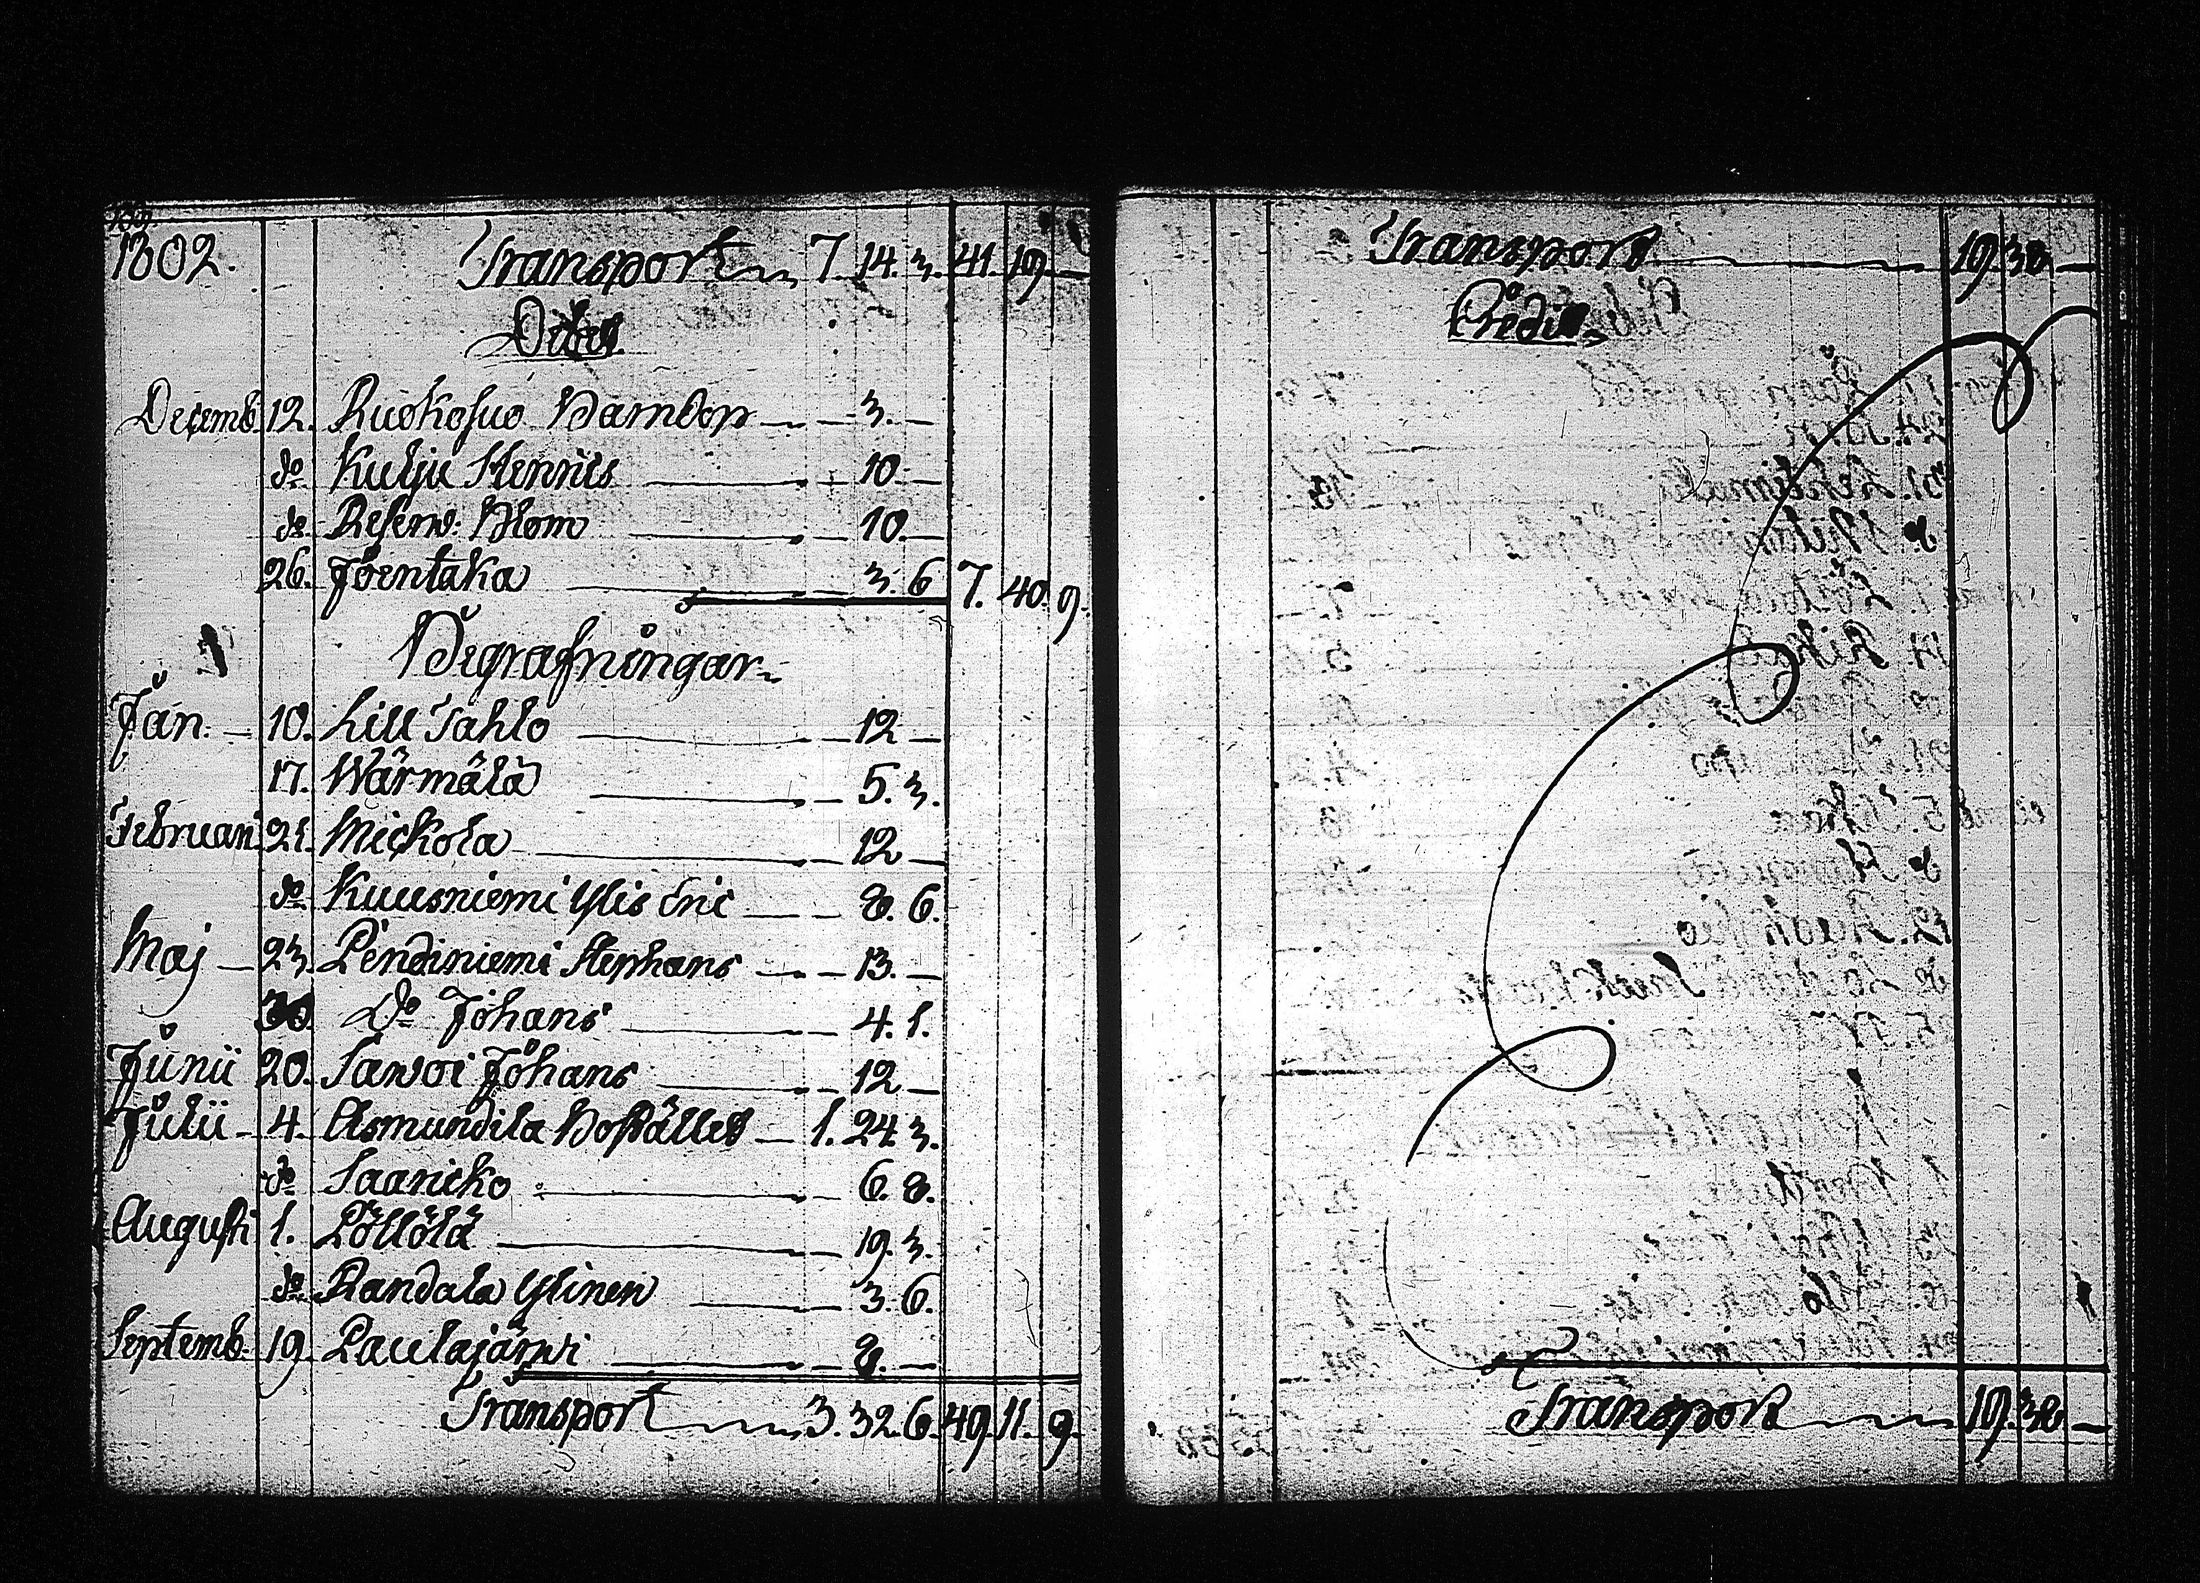 1802. Transport 7. 14. 3. 41. 19. —
Debet
Decemb. 12. Ruokosuo Barndop — 3. —
do Kulju Henrics — 10. —
do Reserv. Blom — 10. —
26. Joentaka — 3. 6 7. 40. 9.
Begrafningar
Jan. — 10. Lill Tahlo — 12 —
17. Wärmälä — 5. 3.
Februari 21. Mickola — 12 —
do Kuusniemi Ylis Eric — 8. 6.
Maj — 23. Pendiniemi Stephans — 13. —
30 Do Johans — 4. 1.
Junii 20. Sawoi Johans — 12 —
Julii — 4. Asmundila Boställed — 1. 24. 3.
do Saaricko — 6. 8.
Augusti 1. Pöllölä — 19. 3.
do Randala Ylinen — 3. 6.
Septemb. 19. Paulajärwi — 8. —
Transport 3. 32. 6. 49. 11. 9.
Transport 19. 38 —
Credit
Transport 19. 38 —